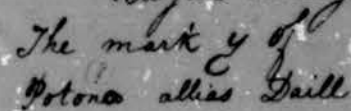 The mark y of
Potones allias Daill